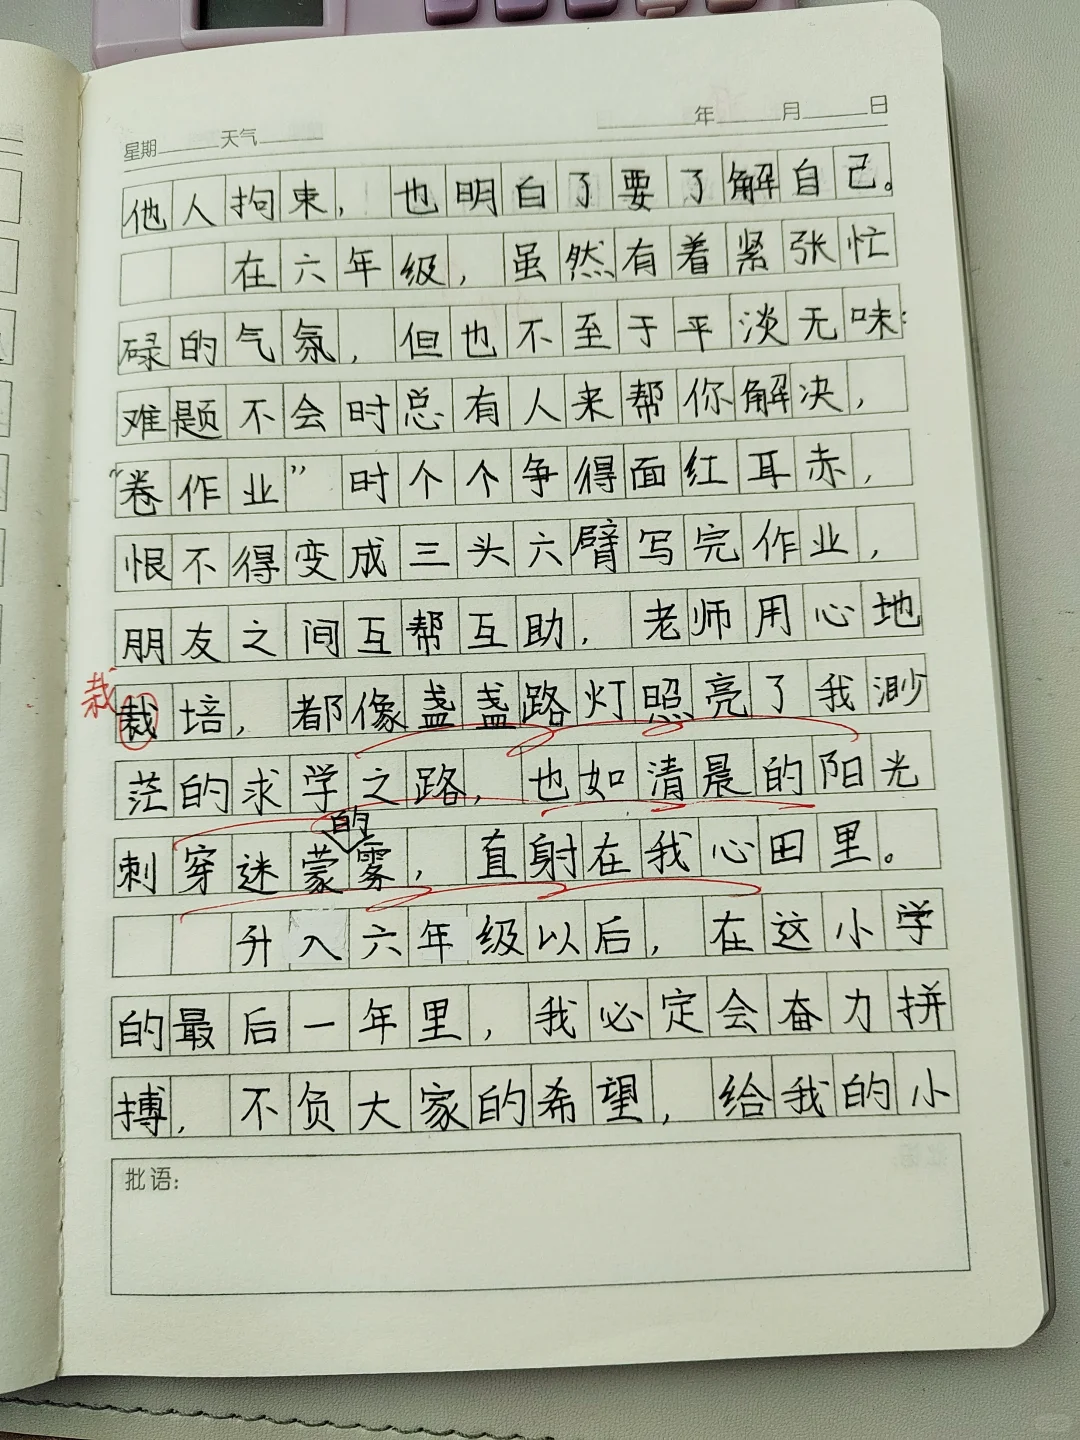 星期 天气 年 月 日
他人拘束，也明白了要了解自己。
在六年级，虽然有着紧张忙
碌的气氛，但也不至于平淡无味：
难题不会时总有人来帮你解决，
“卷作业”时个个争得面红耳赤，
恨不得变成三头六臂写完作业，
朋友之间互帮互助，老师用心地
栽
裁培，都像盏盏路灯照亮了我渺
茫的求学之路，也如清晨的阳光
的
刺穿迷蒙雾，直射在我心田里。
升入六年级以后，在这小学
的最后一年里，我必定会奋力拼
搏，不负大家的希望，给我的小
批语：